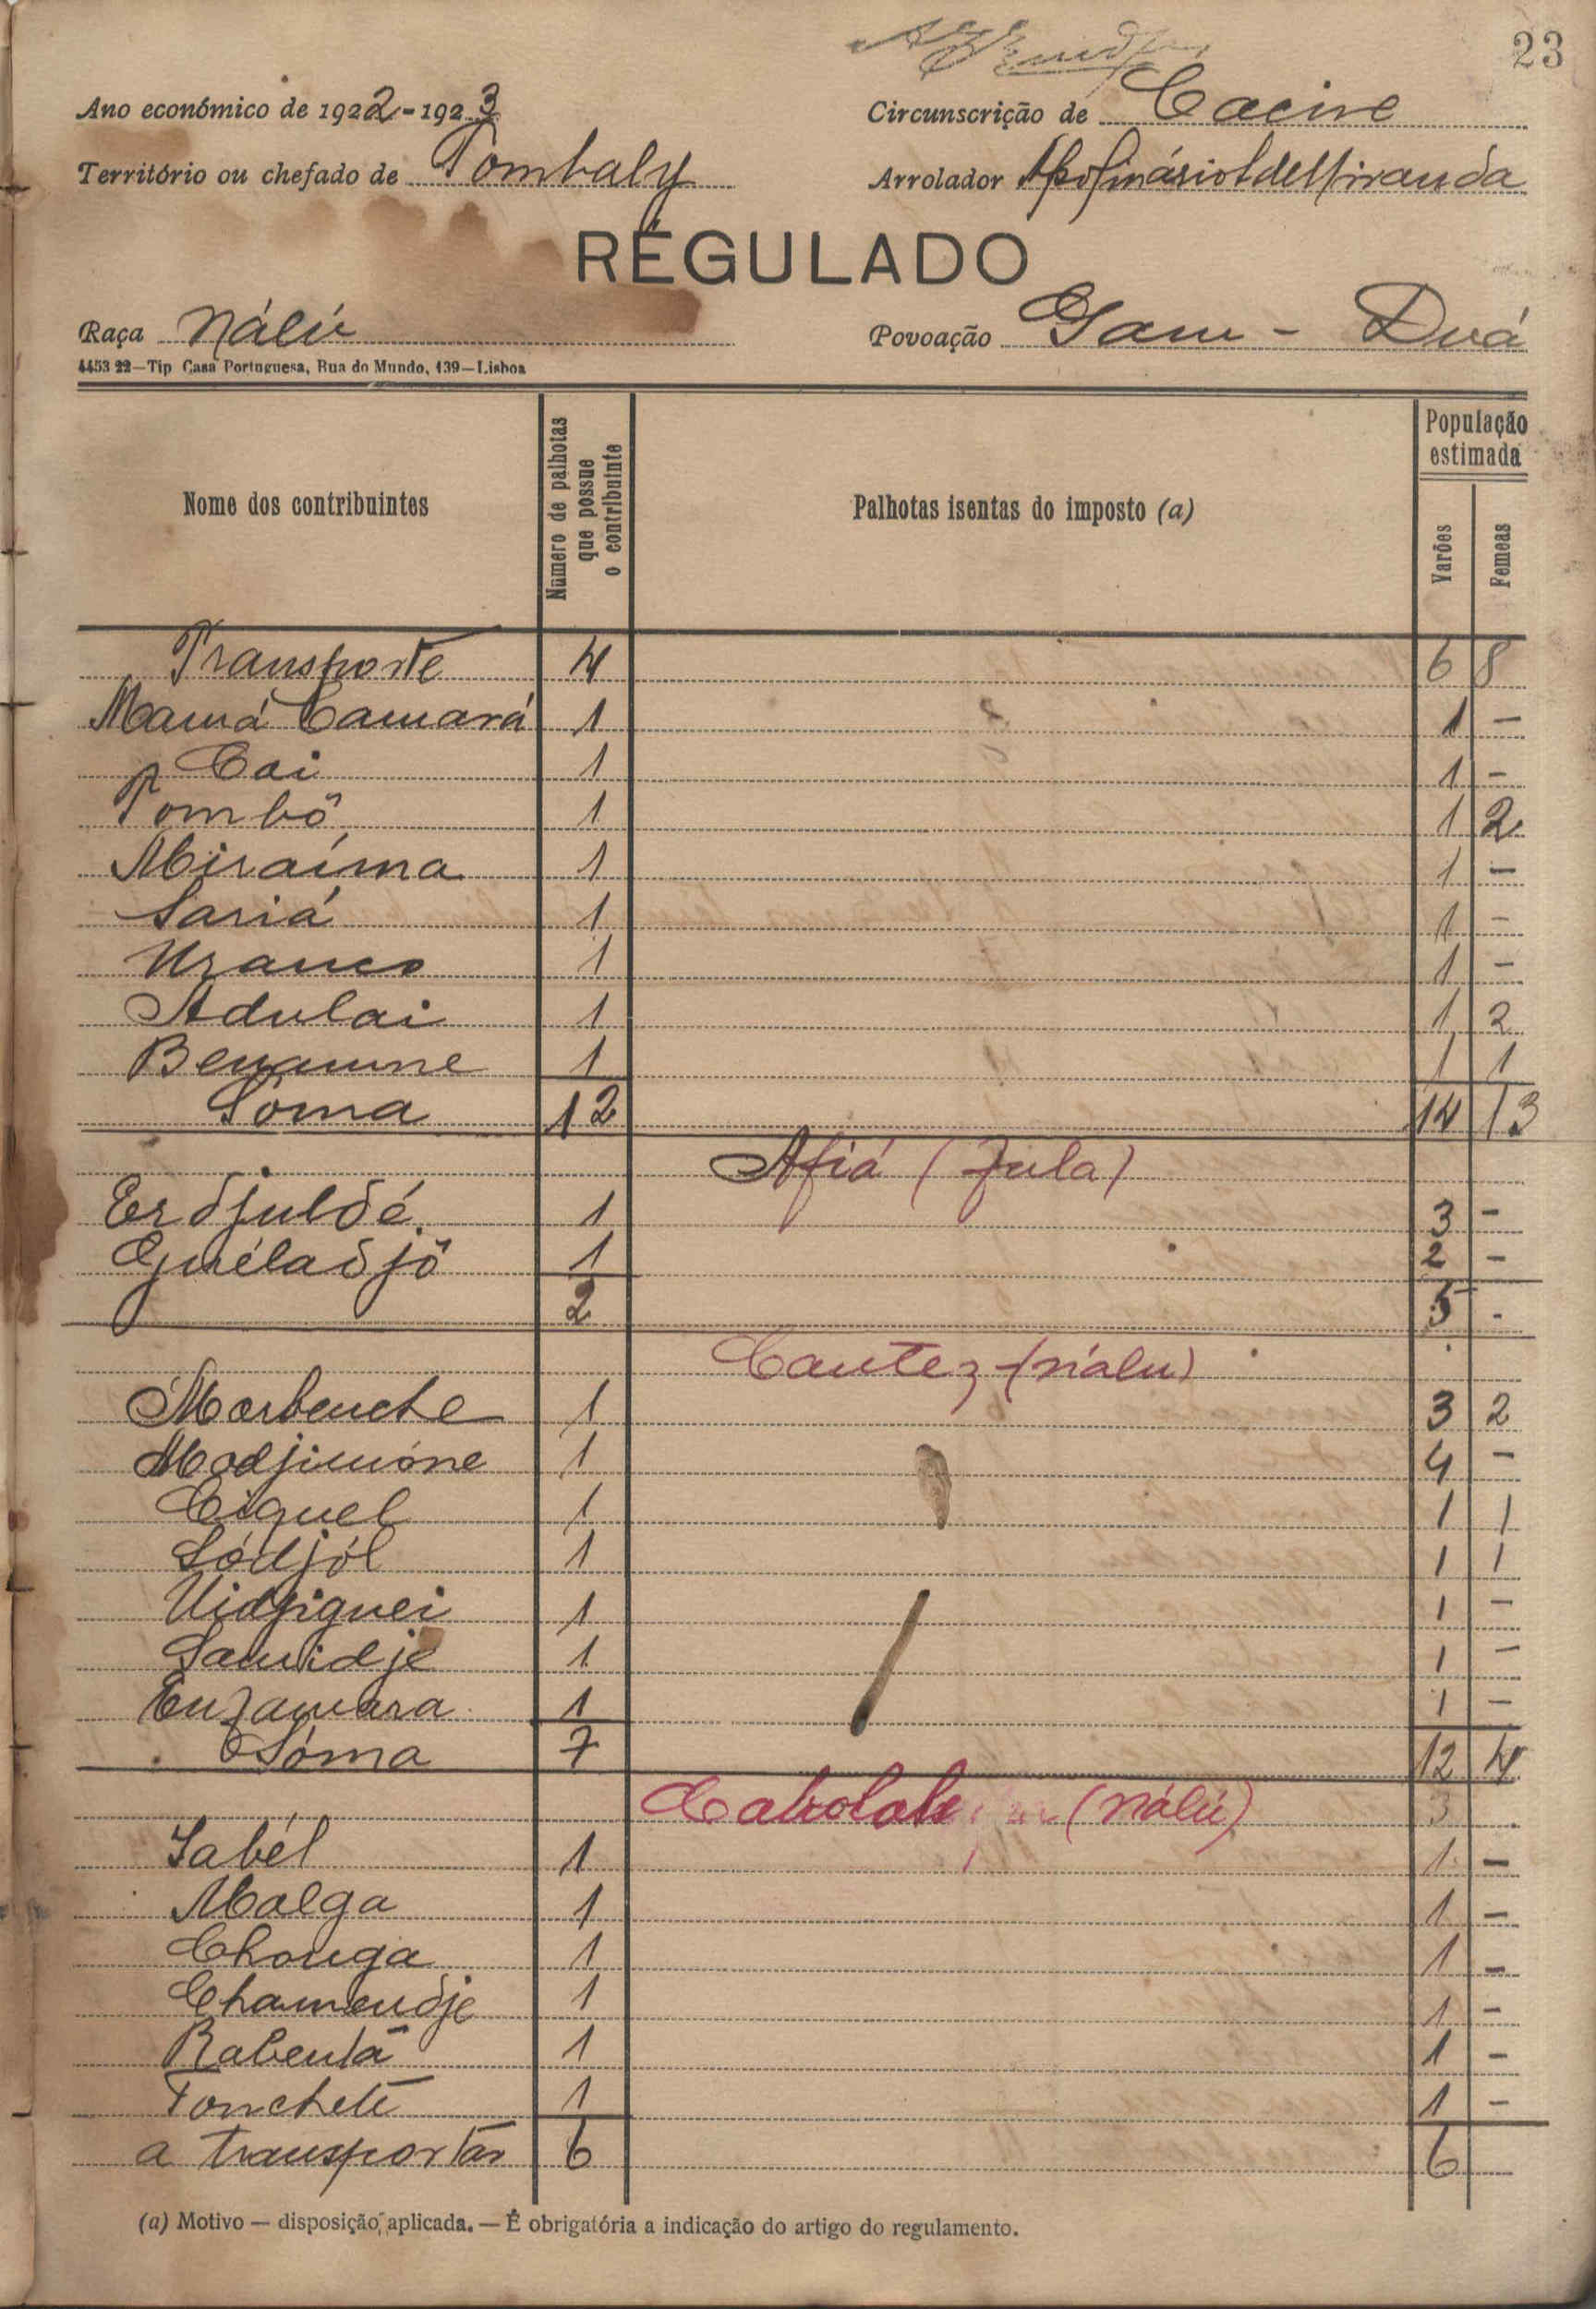 23
Ano económico de 1922-1923
Circunscrição de Cacine
Território ou chefado de Tombaly
Arrolador Apolinário de Miranda
RÉGULADO
Raça Nálú
Povoação Gam - Duá
4453 22—Tip Casa Portuguesa, Rua do Mundo, 139—Lisboa
Nome dos contribuintes
Número de palhotas que possue o contribuinte
Palhotas isentas do imposto (a)
População estimada
Varões
Femeas
Transporte 4 6 8
Mamá Camará 1 1 -
Cai 1 1 -
Tombô 1 1 2
Miraíma 1 1 -
Sariá 1 1 -
1 1 -
Adulai 1 1 2
Benamne 1 1 1
Sôma 12 14 13
Afiá (Fula)
Erdjuldé 1 3 -
Guéladjô 1 2 -
2 5 -
Cautez (nálu)
Marbenche 1 3 2
Modjimóne 1 4 -
Ciquel 1 1 1
Sódjól 1 1 1
1 1 -
Samidje 1 1 -
1 1 -
Sóma 7 12 4
(nálú) 3
Sabél 1 1 -
Malga 1 1 -
Chonga 1 1 -
Chamendje 1 1 -
Rabentá 1 1 -
Tonchete 1 1 -
a transportar 6 6 -
(a) Motivo — disposição aplicada. — É obrigatória a indicação do artigo do regulamento.